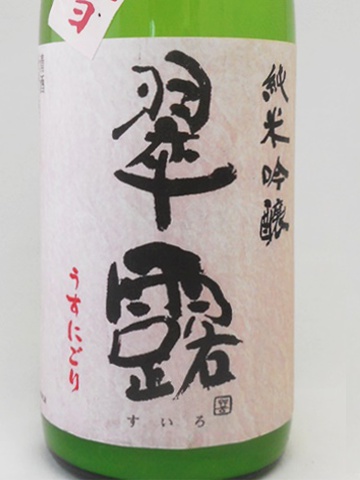 純米吟醸
翠露
すいろ
うすにごり